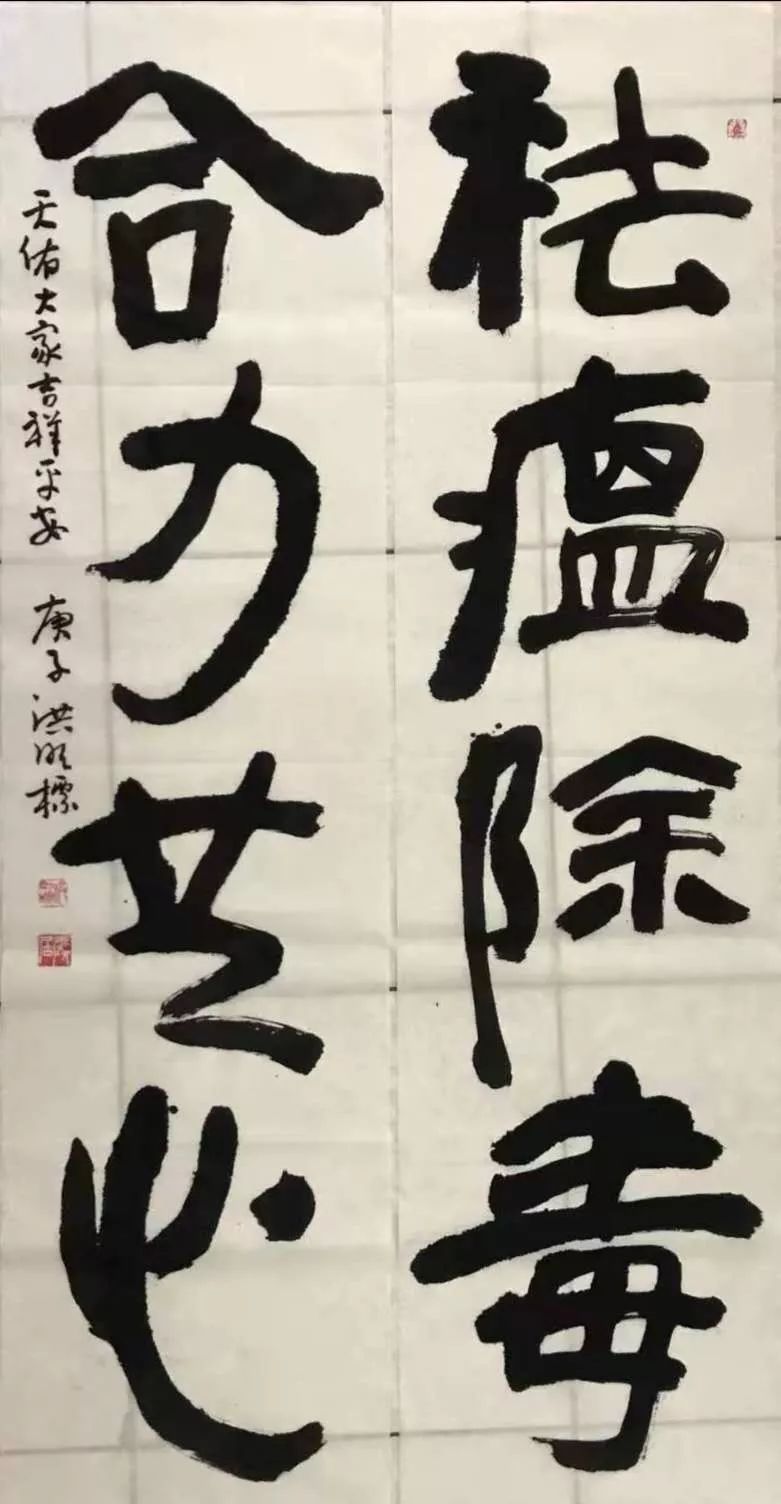 祛瘟除毒
合力共心
天佑大家吉祥平安 庚子洪明標